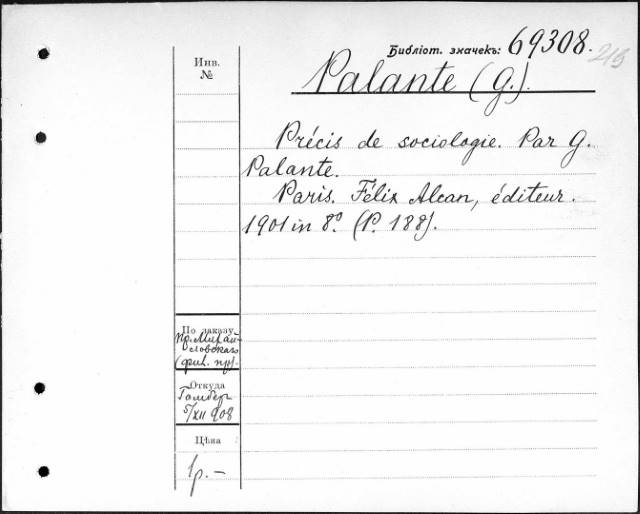 Библіот. значекъ: 69308.
215
Инв.
№
Palante (G.).
Précis de sociologie. Par G.
Palante.
Paris. Félix Alcan, éditeur.
1901 in 8º. (P. 188).
По заказу
пр. Михай-
ловскаго
(фил. пр.).
Откуда
5/XII 908
Цѣна
1р. –